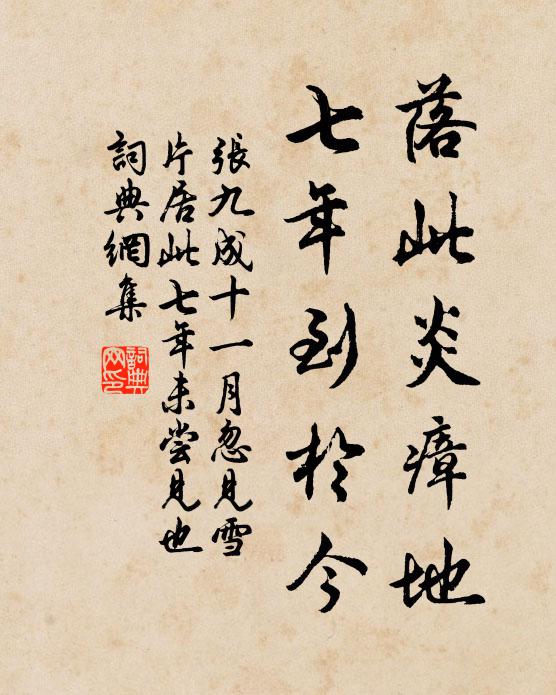 落此炎瘴地
七年到於今
張九成十一月忽見雪
片居此七年未嘗見也
詞典網集
詞典網印